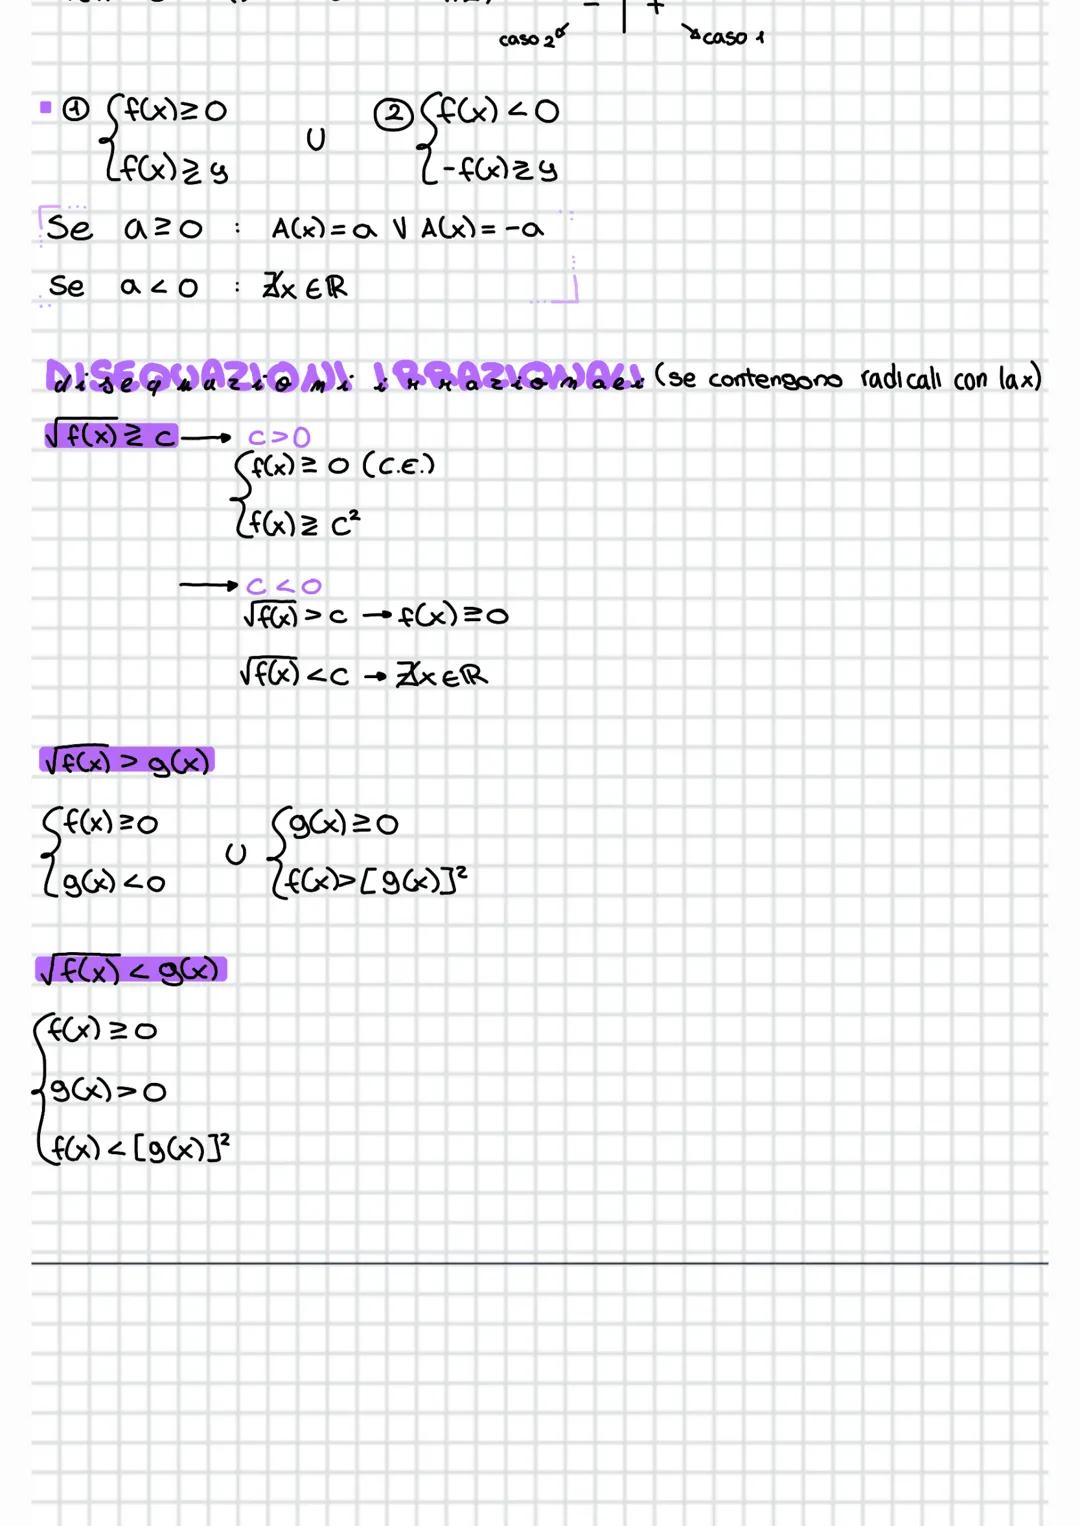 - +
caso 2 caso 1
① { f(x) ≥ 0 ∪ ② { f(x) < 0
f(x) ≷ y -f(x) ≷ y
Se a ≥ 0 : A(x) = a ∨ A(x) = -a
Se a < 0 : ∄x ∈ ℝ
DISEQUAZIONI IRRAZIONALI (se contengono radicali con la x)
√f(x) ≷ c → c > 0
{ f(x) ≥ 0 (C.E.)
f(x) ≷ c²
→ c < 0
√f(x) > c → f(x) ≥ 0
√f(x) < c → ∄x ∈ ℝ
√f(x) > g(x)
{ f(x) ≥ 0 ∪ { g(x) ≥ 0
g(x) < 0 f(x) > [g(x)]²
√f(x) < g(x)
{ f(x) ≥ 0
g(x) > 0
f(x) < [g(x)]²